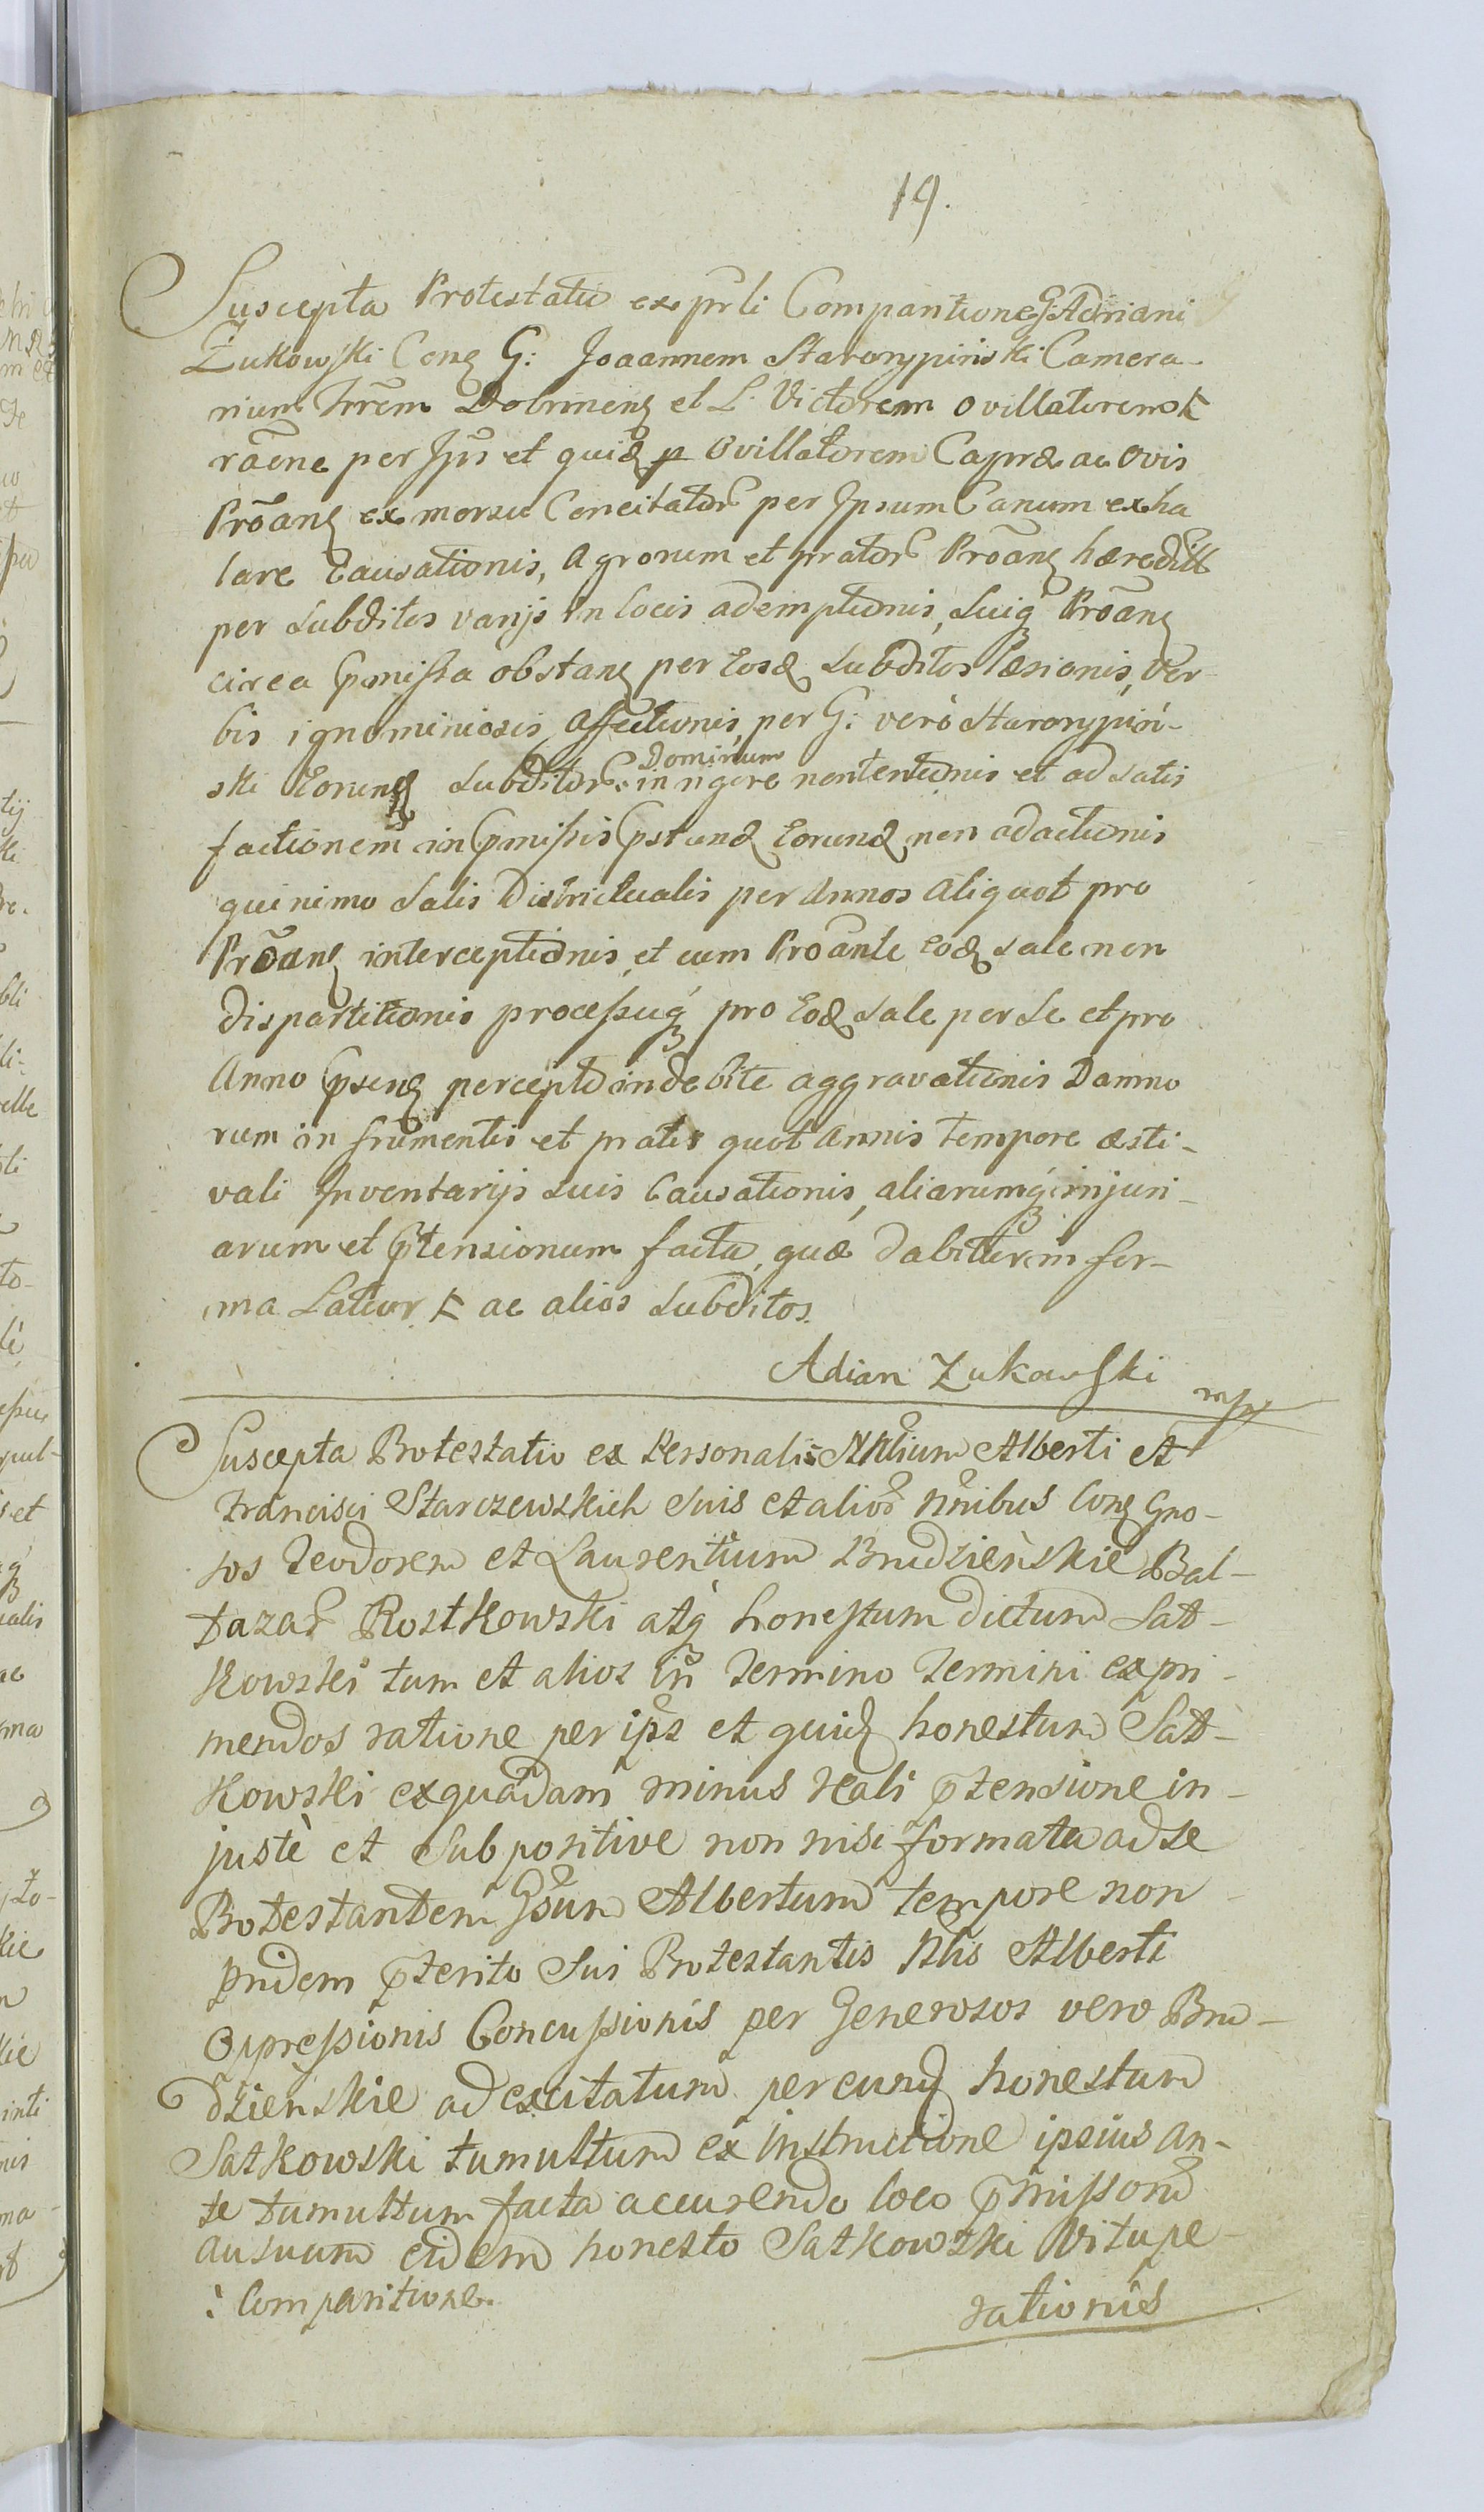 19.
Suscepta Protestatio ex prli Comparitione G. Adriani
Żukowski Conq G: Joaannem Starorypiński Camera-
rium Trrem Dobrinenq et L. Victorem ovillatorem
raene per Ips et quid p ovillatorem Capræ ac ovis
Proanq ex morsu Concitator per Ipsum Canum exha
lare Causationis, Agrorum et prator Proanq hæreditt
per subditos varijs in locis ademptionis, suiq Proanq
circa pmissa obstanq per Eosd subditos Læsionis, ver-
bis ignominiosis affectionis, per G: verò Starorypiń-
ski Eorund subditor. in rigore Dominum nontentionis et ad satis
factionem in pmissis pstand Eorund non adactionis
quinimo salis Districtualis per Annos aliquot pro
Proanq interceptionis, et cum Proante Eod sale non
dispartitionis processuq pro Eod sale per se et pro
Anno psenq percepto indebite aggravationis Damno
rum in frumentis et pratis quot annis tempore æsti-
vali Inventarijs suis Causationis, aliarumq injuri-
arum et ptensionum facta, quæ dabitur in for-
ma Latior ac alios subditos.
Adian Zukowski mp
Suscepta Protestatio ex Personali Nblium Alberti et
Francisci Starczewskich suis et alior nnibus Conq Gno-
sos Teodorem et Laurentium Brudzieńskie Bal-
tazar Rostkowski atq honestum dictum Sat-
kowski tum et alios in Termino Termini expri-
mendos ratione per ips et quid honestum Sat-
kowski exquadam minus reali ptensione in-
justè et subpositive non nisi formata ad se
Protestantem Gsum Albertum tempore non
pridem pterito sui Protestantis Nblis Alberti
Oppressionis Concussionis per Generosos vero Bru-
dzienskie ad excitatum per eund honestum
Satkowski tumultum ex instructione ipsius an-
te tumultum facta accurendo loco pmissorum
ausuum eidem honesto Satkowski Vitupe-
: Comparitione. rationis